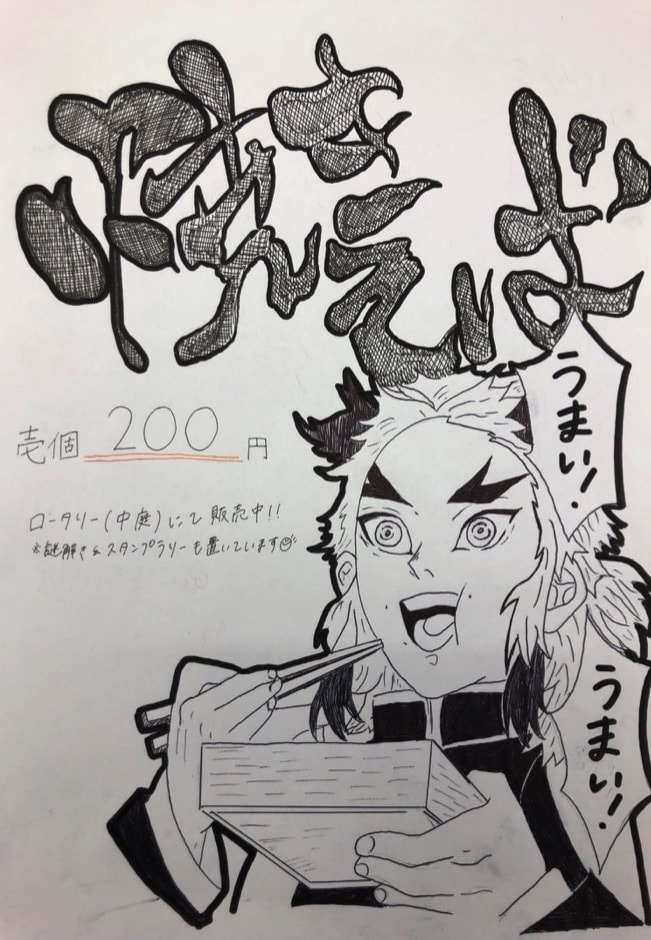 焼きそば
うまい!
壱個 200円
ロータリー(中庭)にて販売中!!
*謎解き&スタンプラリーも置いています
うまい!